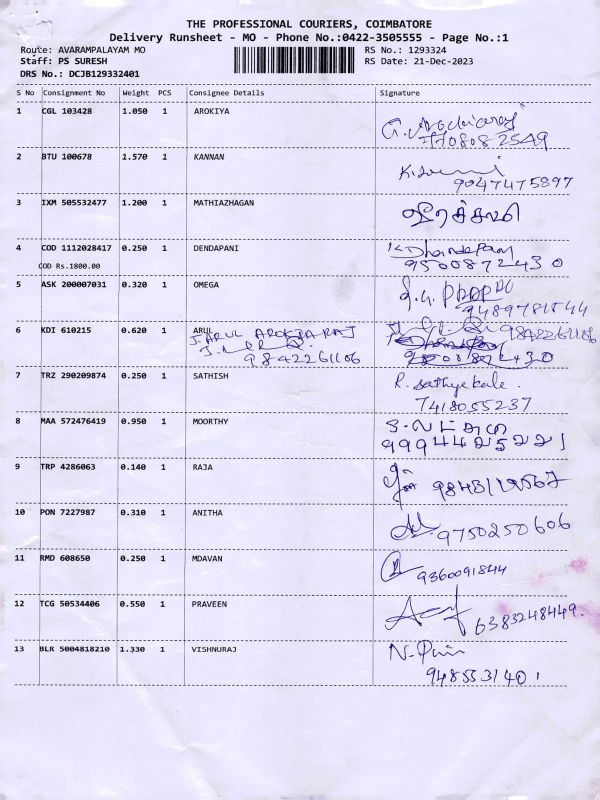 THE PROFESSIONAL COURIERS, COIMBATORE
Delivery Runsheet - MO - Phone No.:0422-3505555 - Page No.:1
Route: AVARAMPALAYAM MO RS No.: 1293324
Staff: PS SURESH RS Date: 21-Dec-2023
DRS No.: DCJB129332401
S No Consignment No Weight PCS Consignee Details Signature
1 CGL 103428 1.050 1 AROKIYA
2 BTU 100678 1.570 1 KANNAN
9047475897
3 IXM 505532477 1.200 1 MATHIAZHAGAN
4 COD 1112028417 0.250 1 DENDAPANI K. Dhandapany
COD Rs.1800.00 9500872430
5 ASK 200007031 0.320 1 OMEGA
9489781544
6 KDI 610215 0.620 1 ARUL 9842261106
J. ARUL AROKIA RAJ
9842261106 9500872430
7 TRZ 290209874 0.250 1 SATHISH R. Sathyekale.
7418055237
8 MAA 572476419 0.950 1 MOORTHY
9994425221
9 TRP 4286063 0.140 1 RAJA
10 PON 7227987 0.310 1 ANITHA 9750250606
11 RMD 608650 0.250 1 MDAVAN 9360091844
12 TCG 50534406 0.550 1 PRAVEEN 6383248449.
13 BLR 5004818210 1.330 1 VISHNURAJ
9485531401